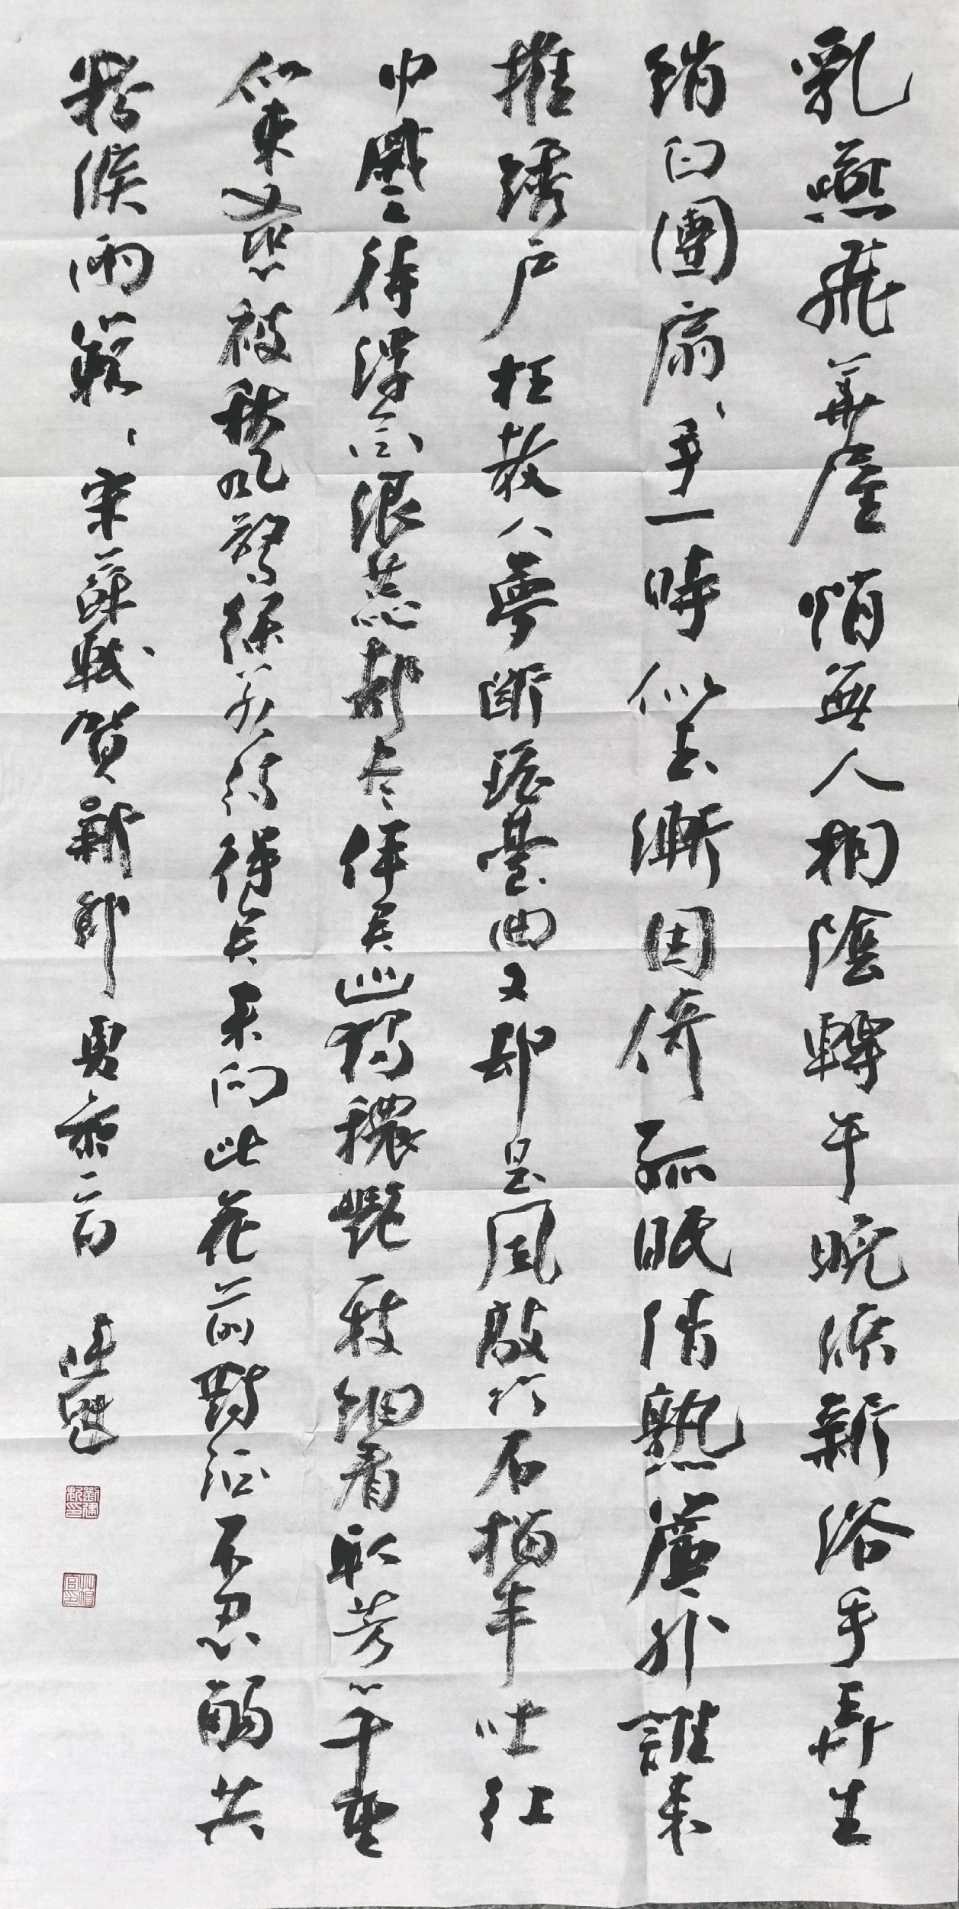 乳燕飛華屋悄無人桐陰轉午晚涼新浴手弄生
綃白團扇扇手一時似玉漸困倚孤眠清熟簾外誰來
推繡户枉教人夢斷瑤臺曲又却是風敲竹石榴半吐紅
巾蹙待浮花浪蕊都盡伴君幽獨穠艷一枝細看取芳心千重
似束又恐被秋風驚綠若待得君來向此花前對酒不忍觸共
粉淚兩簌簌宋蘇軾賀新郎